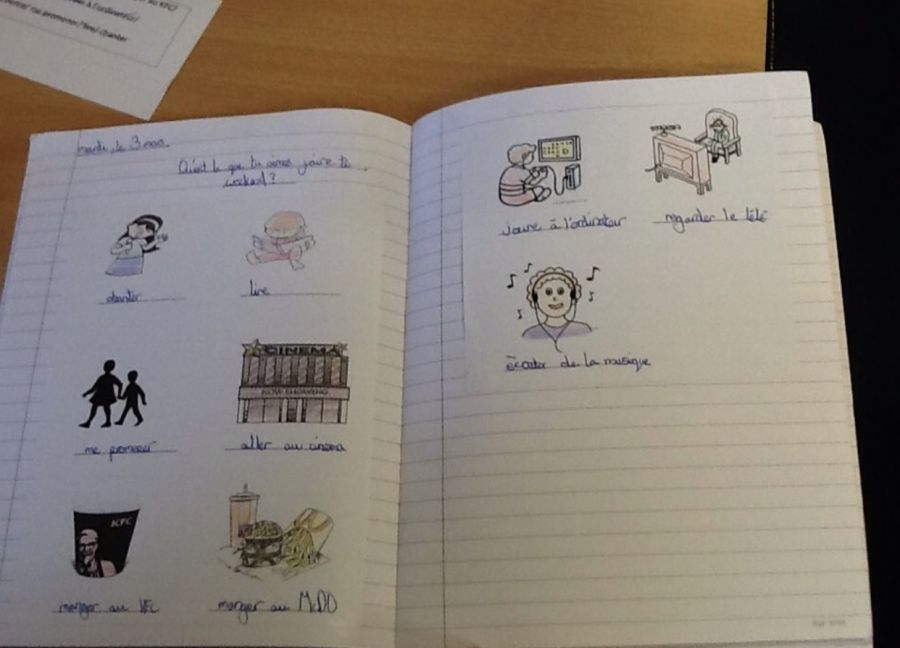 au KFC/
à l'ordinateur/
me promener/lire/ chanter
mardi, le 3 mars.
Qu'est ce que tu aimes faire le
weekend?
chanter
lire
CINEMA
NOW SHOWING
me promener
aller au cinema
KFC
manger au KFC
manger au McDO
jouer à l'ordinateur
regarder le télé
écouter de la musique